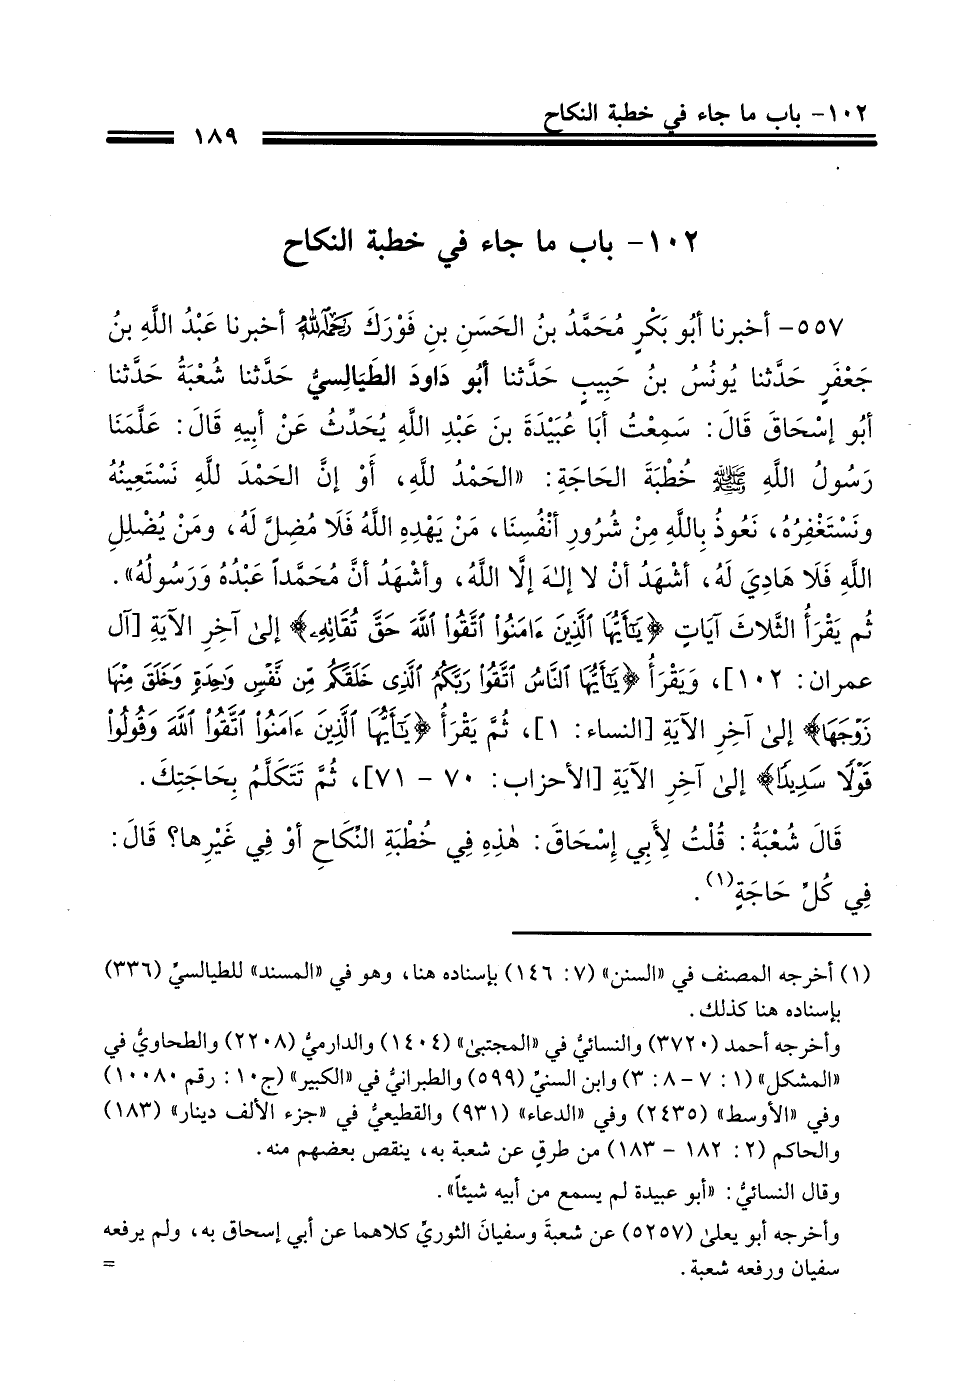 ١٠٢- باب ما جاء في خطبة النكاح
١٨٩
١٠٢- باب ما جاء في خطبة النكاح
٥٥٧- أخبرنا أبُو بَكْرٍ مُحَمَّدُ بنُ الحَسَنِ بنِ فَوْرَكَ رَحِمَهُ اللهُ أخبرنا عَبْدُ اللَّهِ بنُ
جَعْفَرٍ حَدَّثنا يُونُسُ بنُ حَبِيبٍ حَدَّثنا أبُو دَاودَ الطَيالِسيُّ حَدَّثنا شُعْبَةُ حَدَّثنا
أبُو إسْحَاقَ قَالَ: سَمِعْتُ أبَا عُبَيْدَةَ بنَ عَبْدِ اللَّهِ يُحَدِّثُ عَنْ أبِيهِ قَالَ: عَلَّمَنَا
رَسُولُ اللَّهِ ﷺ خُطْبَةَ الحَاجَةِ: «الحَمْدُ للَّهِ، أَوْ إنَّ الحَمْدَ للَّهِ نَسْتَعِينُهُ
ونَسْتَغْفِرُهُ، نَعُوذُ بِاللَّهِ مِنْ شُرُورِ أنْفُسِنَا، مَنْ يَهْدِهِ اللَّهُ فَلَا مُضِلَّ لَهُ، ومَنْ يُضْلِلِ
اللَّهِ فَلَا هَادِيَ لَهُ، أشْهَدُ أنْ لا إلٰهَ إلَّا اللَّهُ، وأشْهَدُ أنَّ مُحَمَّداً عَبْدُهُ وَرَسُولُهُ».
ثُم يَقْرَأُ الثَّلاثَ آيَاتٍ ﴿يَٰٓأَيُّهَا ٱلَّذِينَ ءَامَنُوا۟ ٱتَّقُوا۟ ٱللَّهَ حَقَّ تُقَاتِهِۦ﴾ إلىٰ آخِرِ الآيَةِ [آل
عمران: ١٠٢]، وَيَقْرَأُ ﴿يَٰٓأَيُّهَا ٱلنَّاسُ ٱتَّقُوا۟ رَبَّكُمُ ٱلَّذِى خَلَقَكُم مِّن نَّفْسٍ وَٰحِدَةٍ وَخَلَقَ مِنْهَا
زَوْجَهَا﴾ إلىٰ آخِرِ الآيَةِ [النساء: ١]، ثُمَّ يَقْرَأُ ﴿يَٰٓأَيُّهَا ٱلَّذِينَ ءَامَنُوا۟ ٱتَّقُوا۟ ٱللَّهَ وَقُولُوا۟
قَوْلًا سَدِيدًا﴾ إلىٰ آخِرِ الآيَةِ [الأحزاب: ٧٠ – ٧١]، ثُمَّ تَتَكَلَّمُ بِحَاجَتِكَ.
قَالَ شُعْبَةُ: قُلْتُ لِأَبِي إسْحَاقَ: هٰذِهِ فِي خُطْبَةِ النِّكَاحِ أوْ فِي غَيْرِها؟ قَالَ:
فِي كُلِّ حَاجَةٍ(١).
(١) أخرجه المصنف في «السنن» (٧: ١٤٦) بإسناده هنا، وهو في «المسند» للطيالسيِّ (٣٣٦)
بإسناده هنا كذلك.
وأخرجه أحمد (٣٧٢٠) والنسائيُّ في «المجتبىٰ» (١٤٠٤) والدارميُّ (٢٢٠٨) والطحاويُّ في
«المشكل» (١: ٧ – ٨: ٣) وابن السنيِّ (٥٩٩) والطبرانيُّ في «الكبير» (ج١٠: رقم ١٠٠٨٠)
وفي «الأوسط» (٢٤٣٥) وفي «الدعاء» (٩٣١) والقطيعيُّ في «جزء الألف دينار» (١٨٣)
والحاكم (٢: ١٨٢ – ١٨٣) من طرقٍ عن شعبة به، ينقص بعضهم منه.
وقال النسائيُّ: «أبو عبيدة لم يسمع من أبيه شيئاً».
وأخرجه أبو يعلىٰ (٥٢٥٧) عن شعبةَ وسفيانَ الثوريِّ كلاهما عن أبي إسحاق به، ولم يرفعه
سفيان ورفعه شعبة.
=